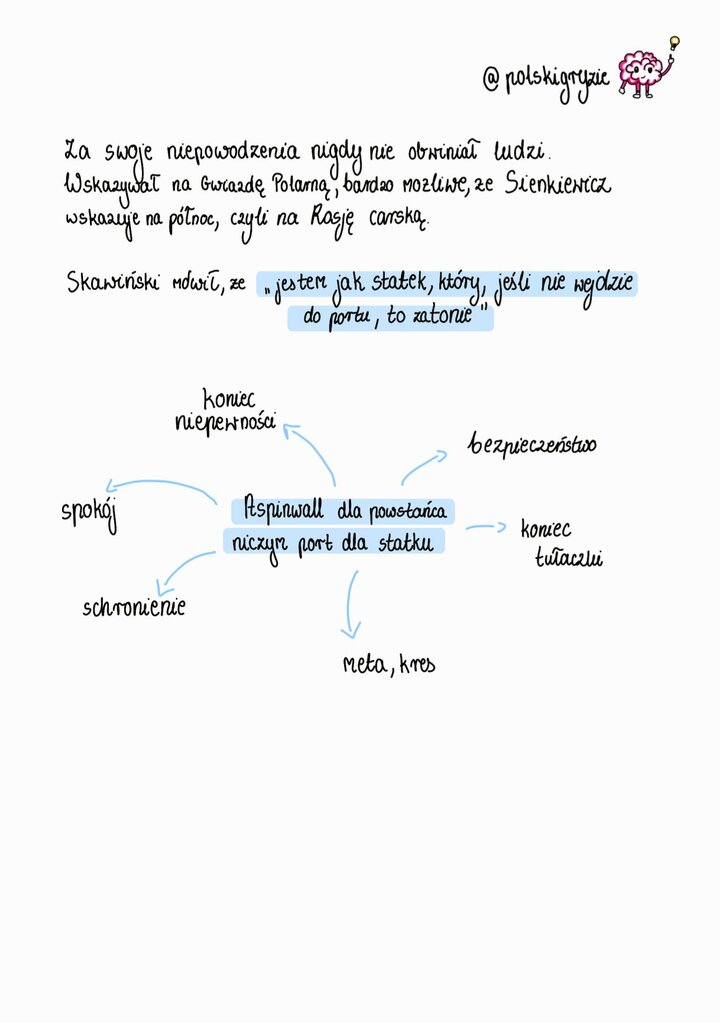 @polskigryzie
Za swoje niepowodzenia nigdy nie obwiniał ludzi.
Wskazywał na Gwiazdę Polarną, bardzo możliwe, że Sienkiewicz
wskazuje na północ, czyli na Rosję carską.
Skawiński mówił, że „jestem jak statek, który, jeśli nie wejdzie
do portu, to zatonie"
koniec
niepewności
bezpieczeństwo
spokój
Aspinwall dla powstańca
niczym port dla statku
koniec
tułaczki
schronienie
meta, kres